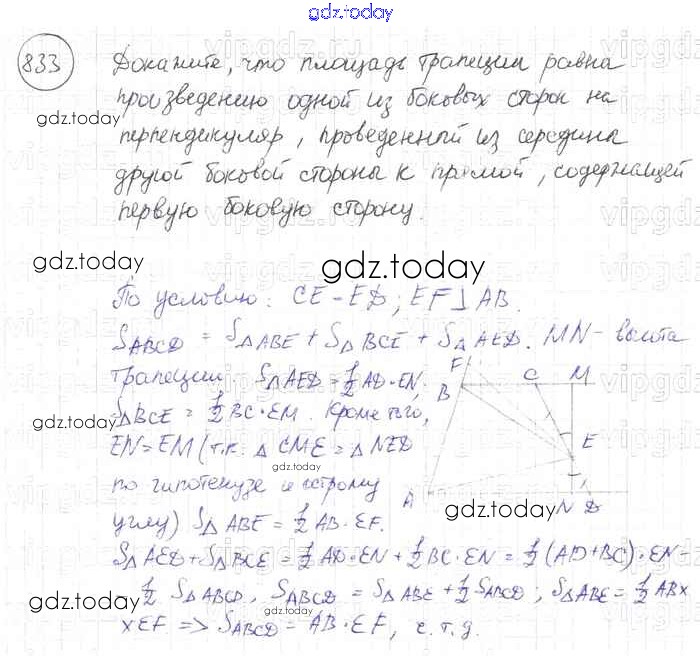 gdz.today
833
Докажите, что площадь трапеции равна
произведению одной из боковых сторон на
gdz.today
перпендикуляр, проведенный из середины
другой боковой стороны к прямой, содержащей
первую боковую сторону.
gdz.today
gdz.today
По условию: CE = ED; EF⊥AB.
S_ABCD = S_ΔABE + S_ΔBCE + S_ΔAED. MN - высота
трапеции. S_ΔAED = 1/2 AD·EN;
F
B C M
S_ΔBCE = 1/2 BC·EM. Кроме того,
gdz.today
EN = EM (т.к. ΔCME = ΔNED
E
по гипотенузе и острому
A N D
углу) S_ΔABE = 1/2 AB·EF.
gdz.today
S_ΔAED + S_ΔBCE = 1/2 AD·EN + 1/2 BC·EN = 1/2 (AD+BC)·EN =
= 1/2 S_ABCD, S_ABCD = S_ΔABE + 1/2 S_ABCD; S_ΔABE = 1/2 AB×
gdz.today
×EF => S_ABCD = AB·EF, ч.т.д.
gdz.today